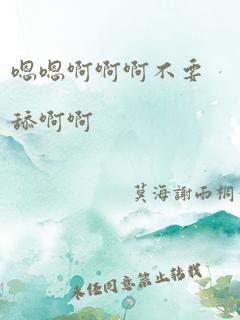 嗯嗯啊啊啊不要
舔啊啊
莫海謝雨桐
未经同意禁止转载